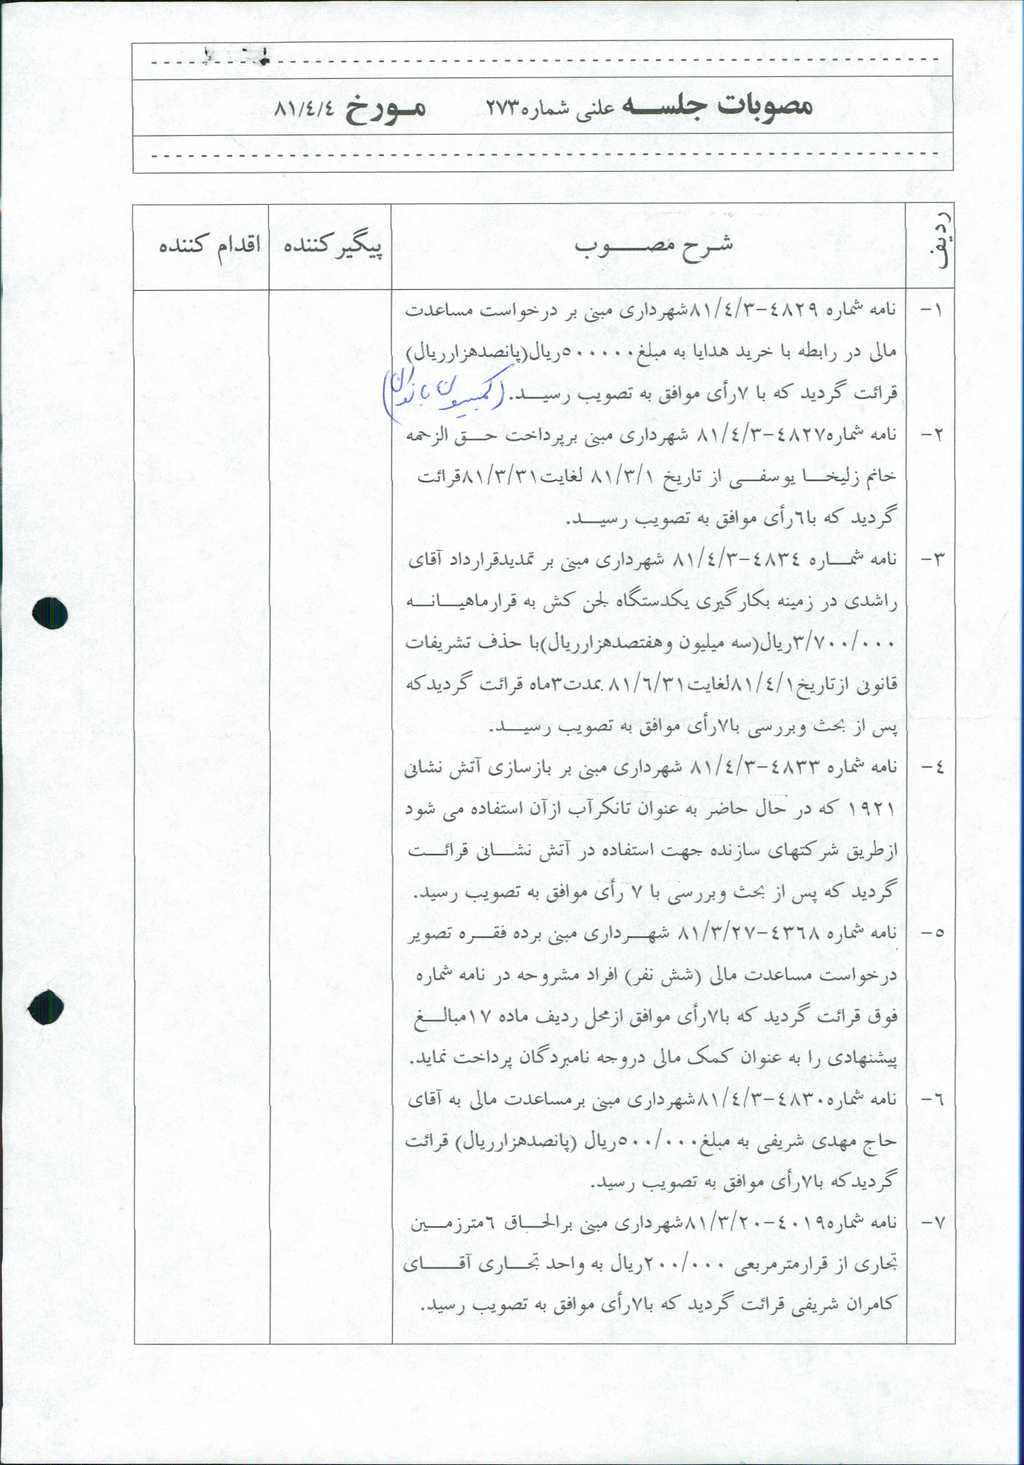 مصوبات جلسـه علنی شماره۲۷۳ مـورخ ۸۱/٤/٤
ردیف
شـرح مصـــوب
پیگیرکننده
اقدام کننده
۱-
نامه شماره ٤۸۲۹-۸۱/٤/۳شهرداری مبنی بر درخواست مساعدت
مالی در رابطه با خرید هدایا به مبلغ۵۰۰۰۰۰ریال(پانصدهزارریال)
قرائت گردید که با ۷رأی موافق به تصویب رسیـــد. (کمیسیون بانوان)
۲-
نامه شماره٤۸۲۷-۸۱/٤/۳ شهرداری مبنی برپرداخت حـق الزحمه
خانم زلیخـــا یوسفـــی از تاریخ ۸۱/۳/۱ لغایت۸۱/۳/۳۱قرائت
گردید که با٦رأی موافق به تصویب رسیـــد.
۳-
نامه شمـــاره ٤۸۳٤-۸۱/٤/۳ شهرداری مبنی بر تمدیدقرارداد آقای
راشدی در زمینه بکارگیری یکدستگاه لجن کش به قرارماهیـــانـــه
۳/۷۰۰/۰۰۰ریال(سه میلیون وهفتصدهزارریال)با حذف تشریفات
قانونی ازتاریخ۸۱/٤/۱لغایت۸۱/٦/۳۱ بمدت۳ماه قرائت گردیدکه
پس از بحث وبررسی با۷رأی موافق به تصویب رسیـــد.
٤-
نامه شماره ٤۸۳۳-۸۱/٤/۳ شهرداری مبنی بر بازسازی آتش نشانی
۱۹۲۱ که در حال حاضر به عنوان تانکرآب ازآن استفاده می شود
ازطریق شرکتهای سازنده جهت استفاده در آتش نشـــانی قرائـــت
گردید که پس از بحث وبررسی با ۷ رأی موافق به تصویب رسید.
۵-
نامه شماره ٤۳٦۸-۸۱/۳/۲۷ شهـــرداری مبنی برده فقـــره تصویر
درخواست مساعدت مالی (شش نفر) افراد مشروحه در نامه شماره
فوق قرائت گردید که با۷رأی موافق ازمحل ردیف ماده ۱۷مبالـــغ
پیشنهادی را به عنوان کمک مالی دروجه نامبردگان پرداخت نماید.
٦-
نامه شماره٤۸۳۰-۸۱/٤/۳شهرداری مبنی برمساعدت مالی به آقای
حاج مهدی شریفی به مبلغ۵۰۰/۰۰۰ریال (پانصدهزارریال) قرائت
گردیدکه با۷رأی موافق به تصویب رسید.
۷-
نامه شماره٤۰۱۹-۸۱/۳/۲۰شهرداری مبنی برالحـاق ٦مترزمـــین
تجاری از قرارمترمربعی ۲۰۰/۰۰۰ریال به واحد تجـــاری آقـــای
کامران شریفی قرائت گردید که با۷رأی موافق به تصویب رسید.